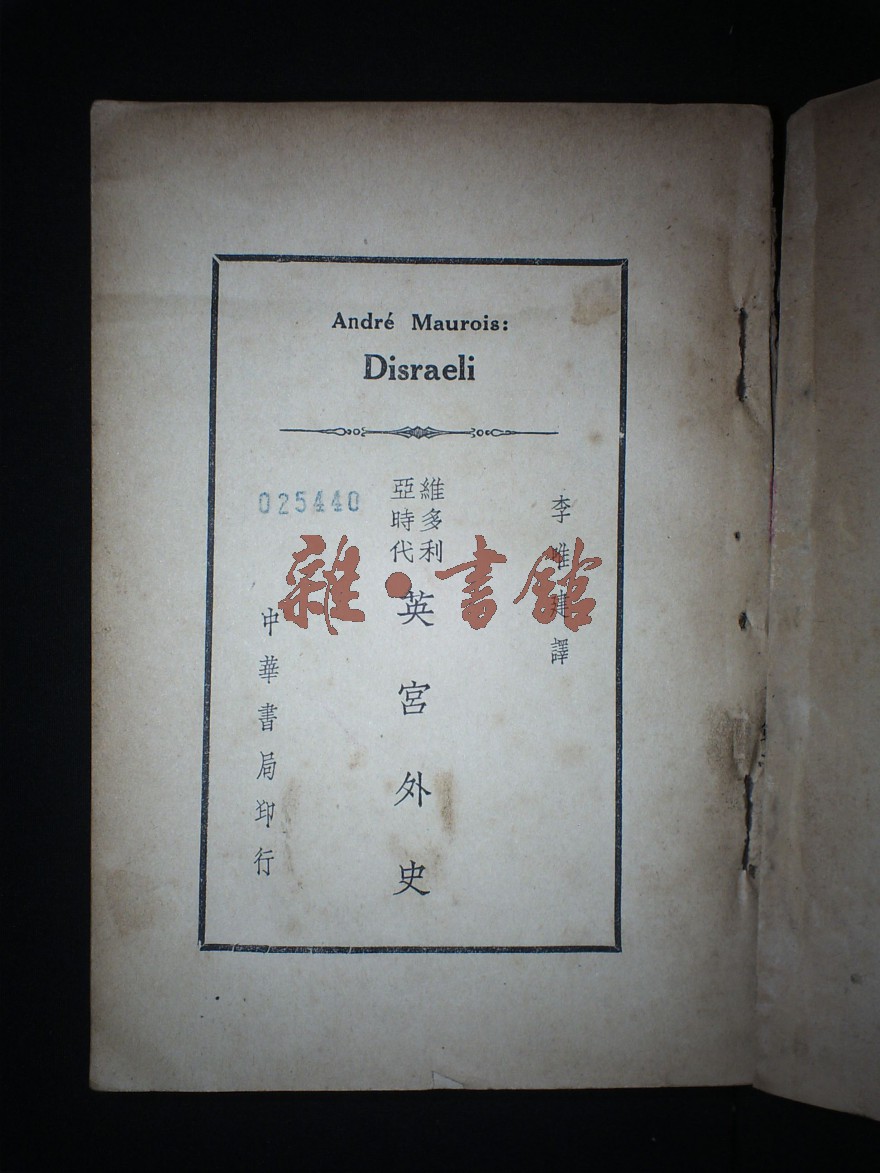 André Maurois:
Disraeli
李唯建譯
維多利
亞時代
英宮外史
025440
中華書局印行
雜·書館